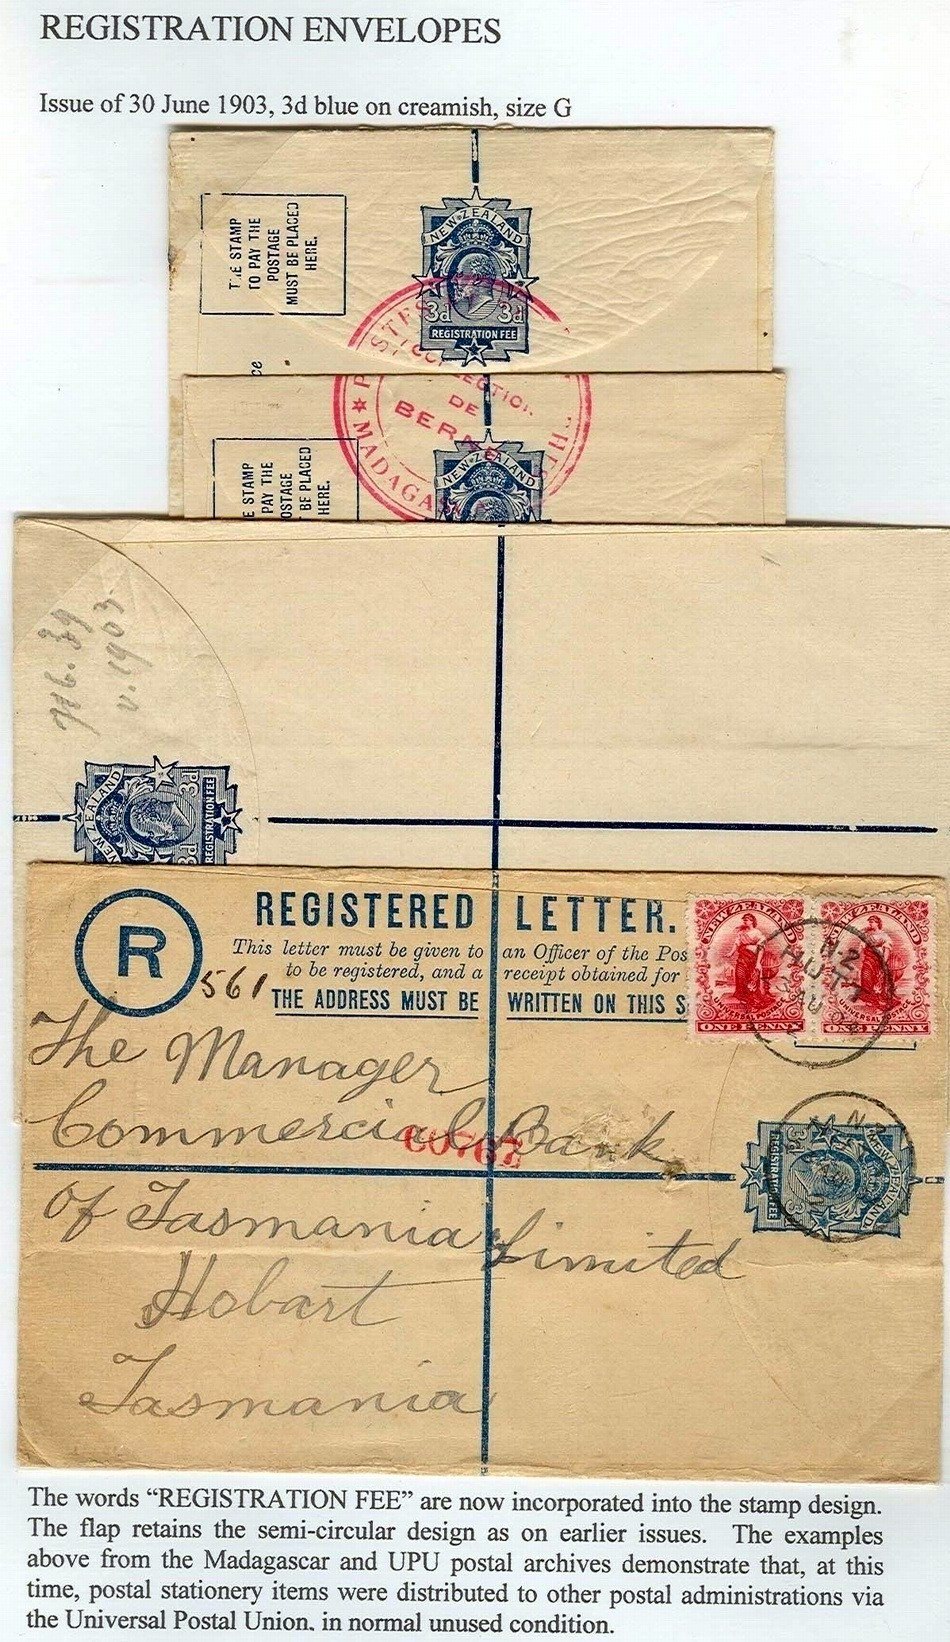 REGISTRATION ENVELOPES
Issue of 30 June 1903, 3d blue on creamish, size G
THE STAMP
TO PAY THE
POSTAGE
MUST BE PLACED
HERE.
NEW ZEALAND
3d 3d
REGISTRATION FEE
ce
COLLECTION
DE
BERNE
MADAGAS
E STAMP
PAY THE
OSTAGE
BE PLACED
HERE.
NEW ZEALAND
716.39
v.1903
NEW ZEALAND
3d
3d
REGISTRATION FEE
R
REGISTERED LETTER.
This letter must be given to an Officer of the Pos
to be registered, and a receipt obtained for
THE ADDRESS MUST BE WRITTEN ON THIS S
561
NEW ZEALAND
UNIVERSAL POSTAGE
ONE PENNY
NEW ZEALAND
UNIVERSAL POSTAGE
ONE PENNY
N.Z
The Manager
Commercial Bank
of Tasmania Limited
Hobart
Tasmania
NEW ZEALAND
3d
3d
REGISTRATION FEE
The words “REGISTRATION FEE” are now incorporated into the stamp design.
The flap retains the semi-circular design as on earlier issues. The examples
above from the Madagascar and UPU postal archives demonstrate that, at this
time, postal stationery items were distributed to other postal administrations via
the Universal Postal Union. in normal unused condition.